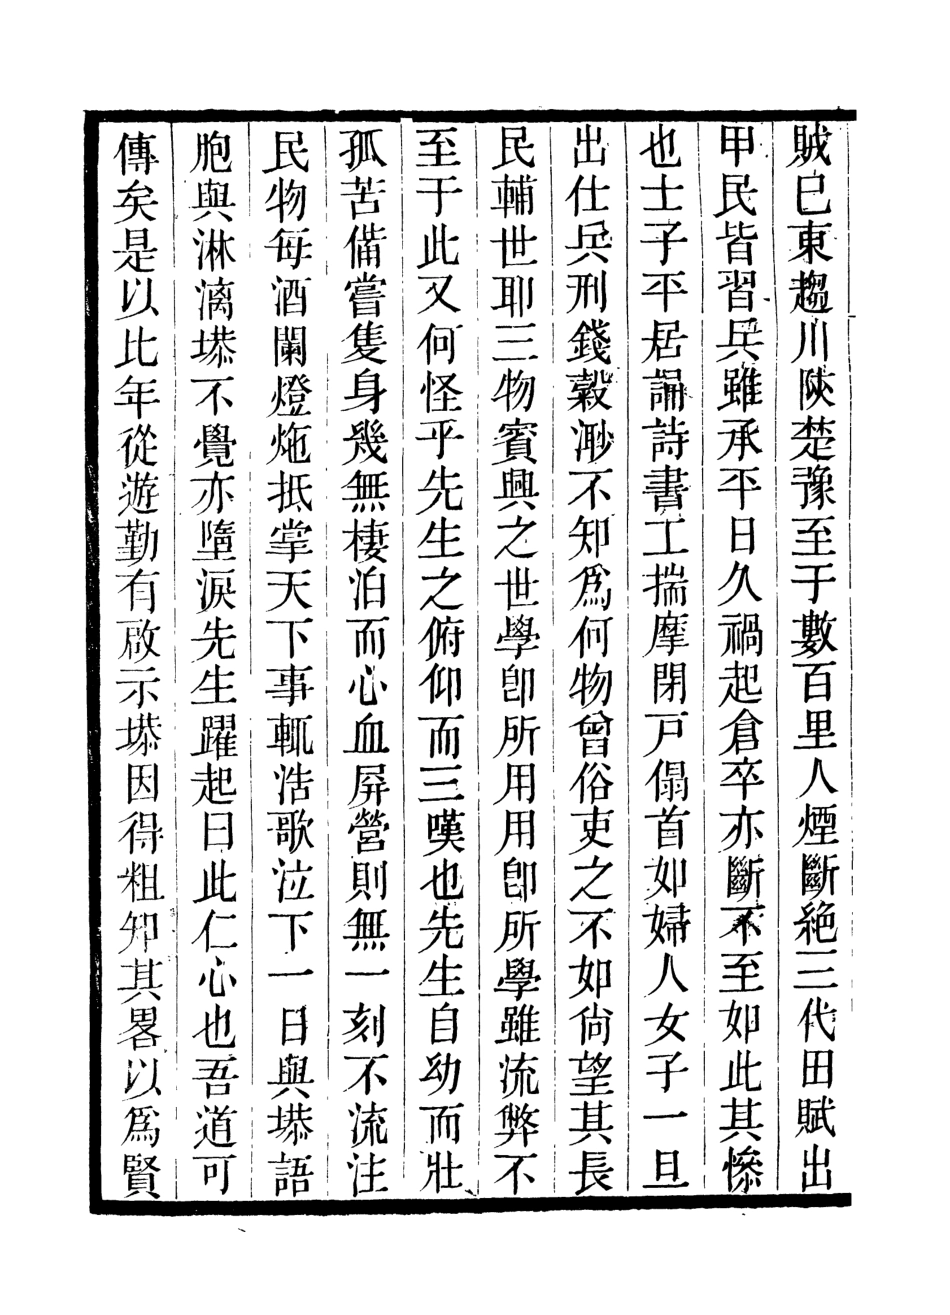 賊已東趨川陝楚豫至于數百里人煙斷絕三代田賦出
甲民皆習兵雖承平日久禍起倉卒亦斷不至如此其慘
也士子平居誦詩書工揣摩閉戶傝首如婦人女子一旦
出仕兵刑錢穀渺不知爲何物曾俗吏之不如尙望其長
民輔世耶三物賓興之世學卽所用用卽所學雖流弊不
至于此又何怪乎先生之俯仰而三嘆也先生自幼而壯
孤苦備嘗隻身幾無棲泊而心血屏營則無一刻不流注
民物每酒闌燈灺抵掌天下事輒浩歌泣下一日與塨語
胞與淋漓塨不覺亦墮淚先生躍起曰此仁心也吾道可
傳矣是以比年從遊勤有啟示塨因得粗知其畧以爲賢